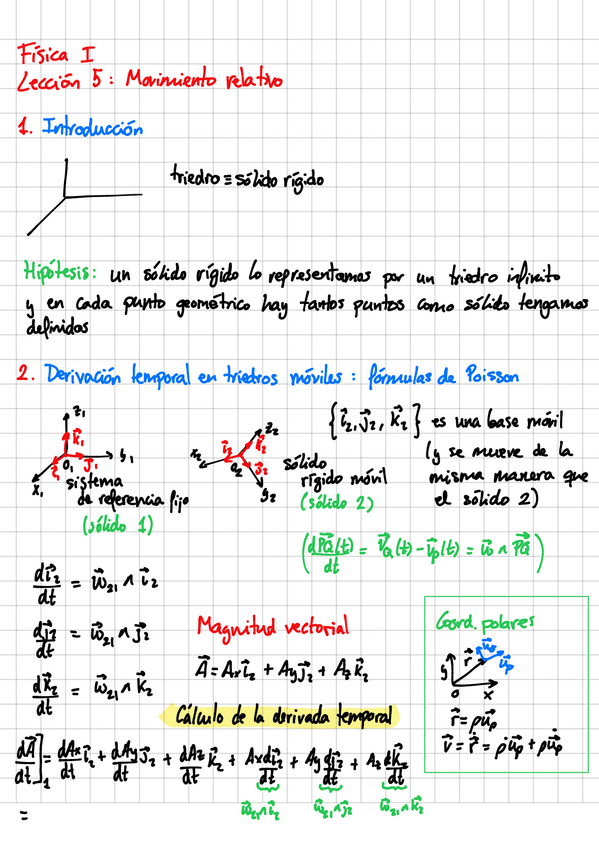 Física I
Lección 5: Movimiento relativo
1. Introducción
triedro ≡ sólido rígido
Hipótesis: un sólido rígido lo representamos por un triedro infinito
y en cada punto geométrico hay tantos puntos como sólido tengamos
definidos
2. Derivación temporal en triedros móviles: fórmulas de Poisson
z₁
k⃗₁
i⃗₁ O₁ j⃗₁ y₁
x₁
sistema
de referencia fijo
(sólido 1)
z₂
x₂ i⃗₂ k⃗₂
O₂ j⃗₂
y₂
sólido
rígido móvil
(sólido 2)
{i⃗₂, j⃗₂, k⃗₂} es una base móvil
(y se mueve de la
misma manera que
el sólido 2)
(dPQ⃗(t)/dt = v⃗_Q(t) - v⃗_P(t) = ω⃗ ∧ PQ⃗)
di⃗₂/dt = ω⃗₂₁ ∧ i⃗₂
dj⃗₂/dt = ω⃗₂₁ ∧ j⃗₂
dk⃗₂/dt = ω⃗₂₁ ∧ k⃗₂
Magnitud vectorial
A⃗ = Ax i⃗₂ + Ay j⃗₂ + Az k⃗₂
Cálculo de la derivada temporal
Coord. polares
y r⃗ u⃗θ u⃗ρ
O x
r⃗ = ρu⃗ρ
v⃗ = r⃗̇ = ρ̇u⃗ρ + ρu⃗̇ρ
dA⃗/dt]₁ = dAx/dt i⃗₂ + dAy/dt j⃗₂ + dAz/dt k⃗₂ + Ax di⃗₂/dt + Ay dj⃗₂/dt + Az dk⃗₂/dt
ω⃗₂₁∧i⃗₂ ω⃗₂₁∧j⃗₂ ω⃗₂₁∧k⃗₂
=